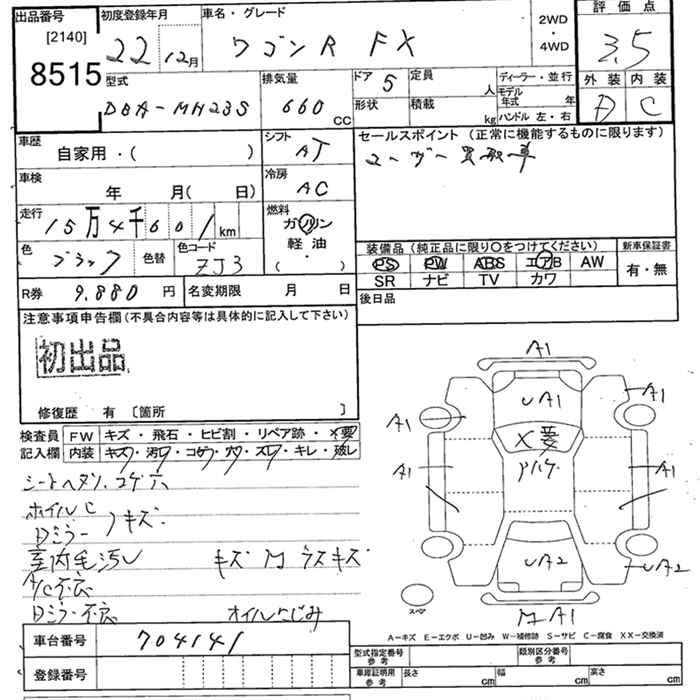 出品番号
[2140]
8515
初度登録年月
22 12月
車名・グレード
ワゴンR FX
2WD
・
4WD
評価点
3.5
外装 内装
D C
型式
DBA-MH23S
排気量
660 CC
ドア 5
形状
定員 人
積載 kg
ディーラー・並行
モデル年式 年
ハンドル 左・右
車歴
自家用・( )
シフト
AT
車検
年 月( 日)
冷房
AC
走行
15万4千601km
燃料
ガソリン
軽油
( ・ )
色
ブラック
色替
色コード
ZJ3
R券 9.880 円
名変期限 月 日
セールスポイント(正常に機能するものに限ります)
ユーザー買取車
装備品(純正品に限り○をつけてください)
PS PW ABS エアB AW
SR ナビ TV カワ
新車保証書
有・無
後日品
注意事項申告欄(不具合内容等は具体的に記入して下さい)
初出品
修復歴 有〔箇所 〕
検査員 FW キズ・飛石・ヒビ割・リペア跡・X要
記入欄 内装 キズ・汚レ・コゲ・穴・スレ・キレ・破レ
シートヘタリ、コゲ穴
ホイルC
Dミラー キズ
室内毛汚レ キズ M ラスキズ
A/C不良
Dミラー不良 オイルにじみ
車台番号 704141
登録番号
A1
A1
UA1
A1
X要
A1
A1
UA2
UA2
M A1
スペア
A−キズ E−エクボ U−凹み W−補修跡 S−サビ C−腐食 XX−交換済
型式指定番号
参考
類別区分番号
参考
車庫証明用
参考
長さ cm 幅 cm 高さ cm